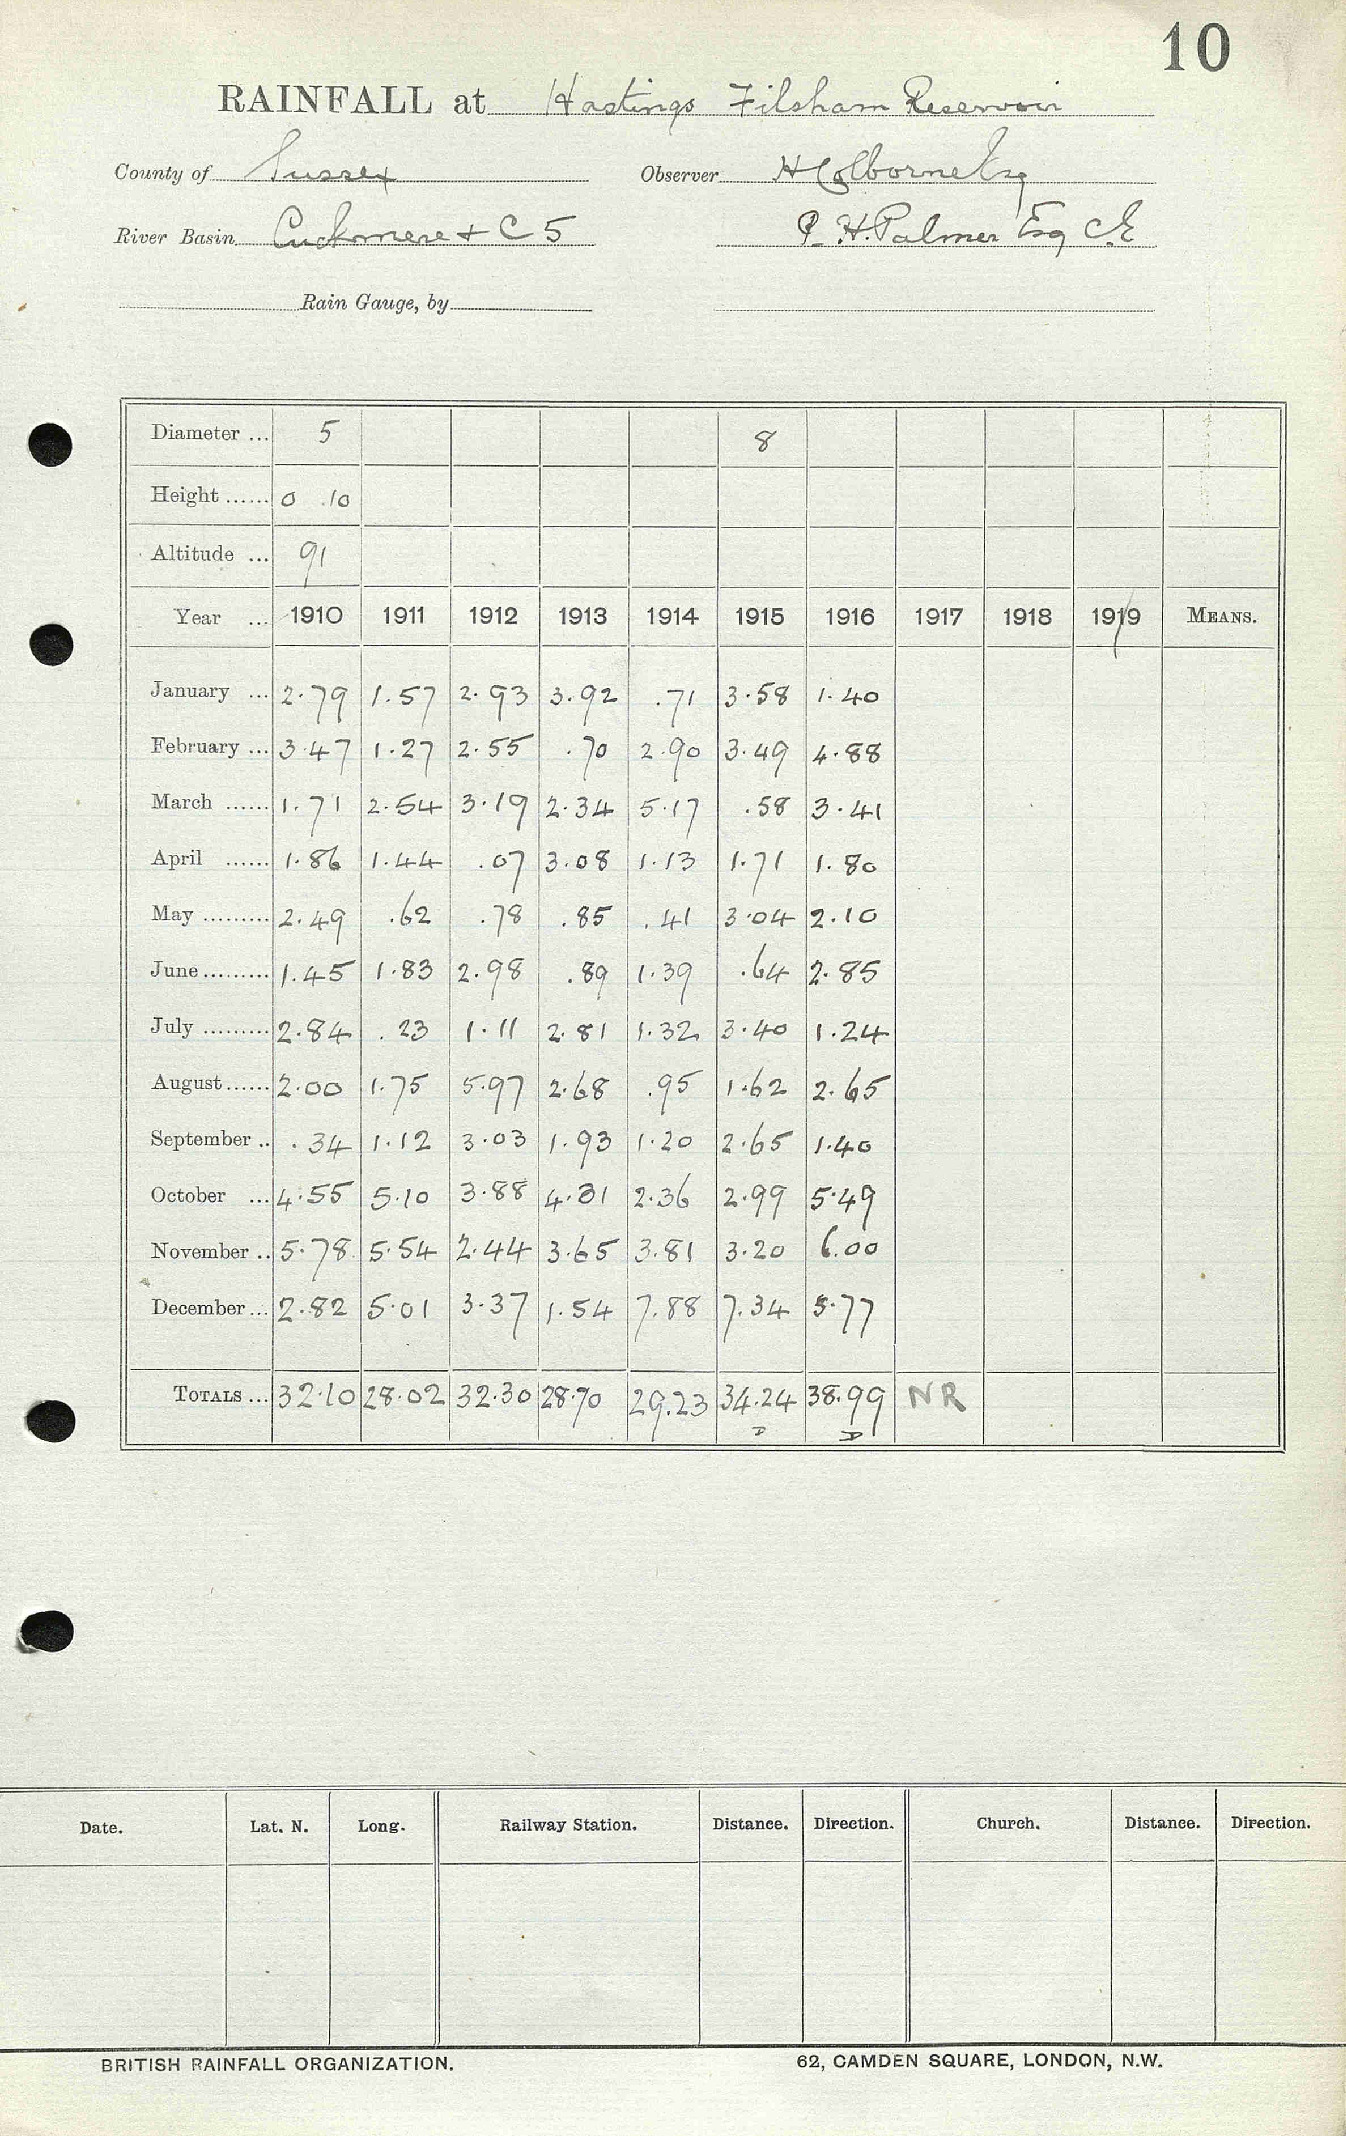 10
RAINFALL at Hastings Filsham Reservoir
County of Sussex Observer H Colborne Esq
River Basin Cuckmere + C 5 P. H. Palmer Esq C.E
Rain Gauge, by
Diameter ... 5 8
Height ...... 0 .10
Altitude ... 91
Year ... 1910 1911 1912 1913 1914 1915 1916 1917 1918 1919 MEANS.
January ... 2.79 1.57 2.93 3.92 .71 3.58 1.40
February ... 3.47 1.27 2.55 .70 2.90 3.49 4.88
March ...... 1.71 2.54 3.19 2.34 5.17 .58 3.41
April ...... 1.86 1.44 .07 3.08 1.13 1.71 1.80
May ......... 2.49 .62 .78 .85 .41 3.04 2.10
June ......... 1.45 1.83 2.98 .89 1.39 .64 2.85
July ......... 2.84 .23 1.11 2.81 1.32 3.40 1.24
August ...... 2.00 1.75 5.97 2.68 .95 1.62 2.65
September .. .34 1.12 3.03 1.93 1.20 2.65 1.40
October ... 4.55 5.10 3.88 4.31 2.36 2.99 5.49
November .. 5.78 5.54 2.44 3.65 3.81 3.20 6.00
December ... 2.82 5.01 3.37 1.54 7.88 7.34 5.77
TOTALS ... 32.10 28.02 32.30 28.70 29.23 34.24 38.99 NR
D D
Date. Lat. N. Long. Railway Station. Distance. Direction. Church. Distance. Direction.
BRITISH RAINFALL ORGANIZATION. 62, CAMDEN SQUARE, LONDON, N.W.